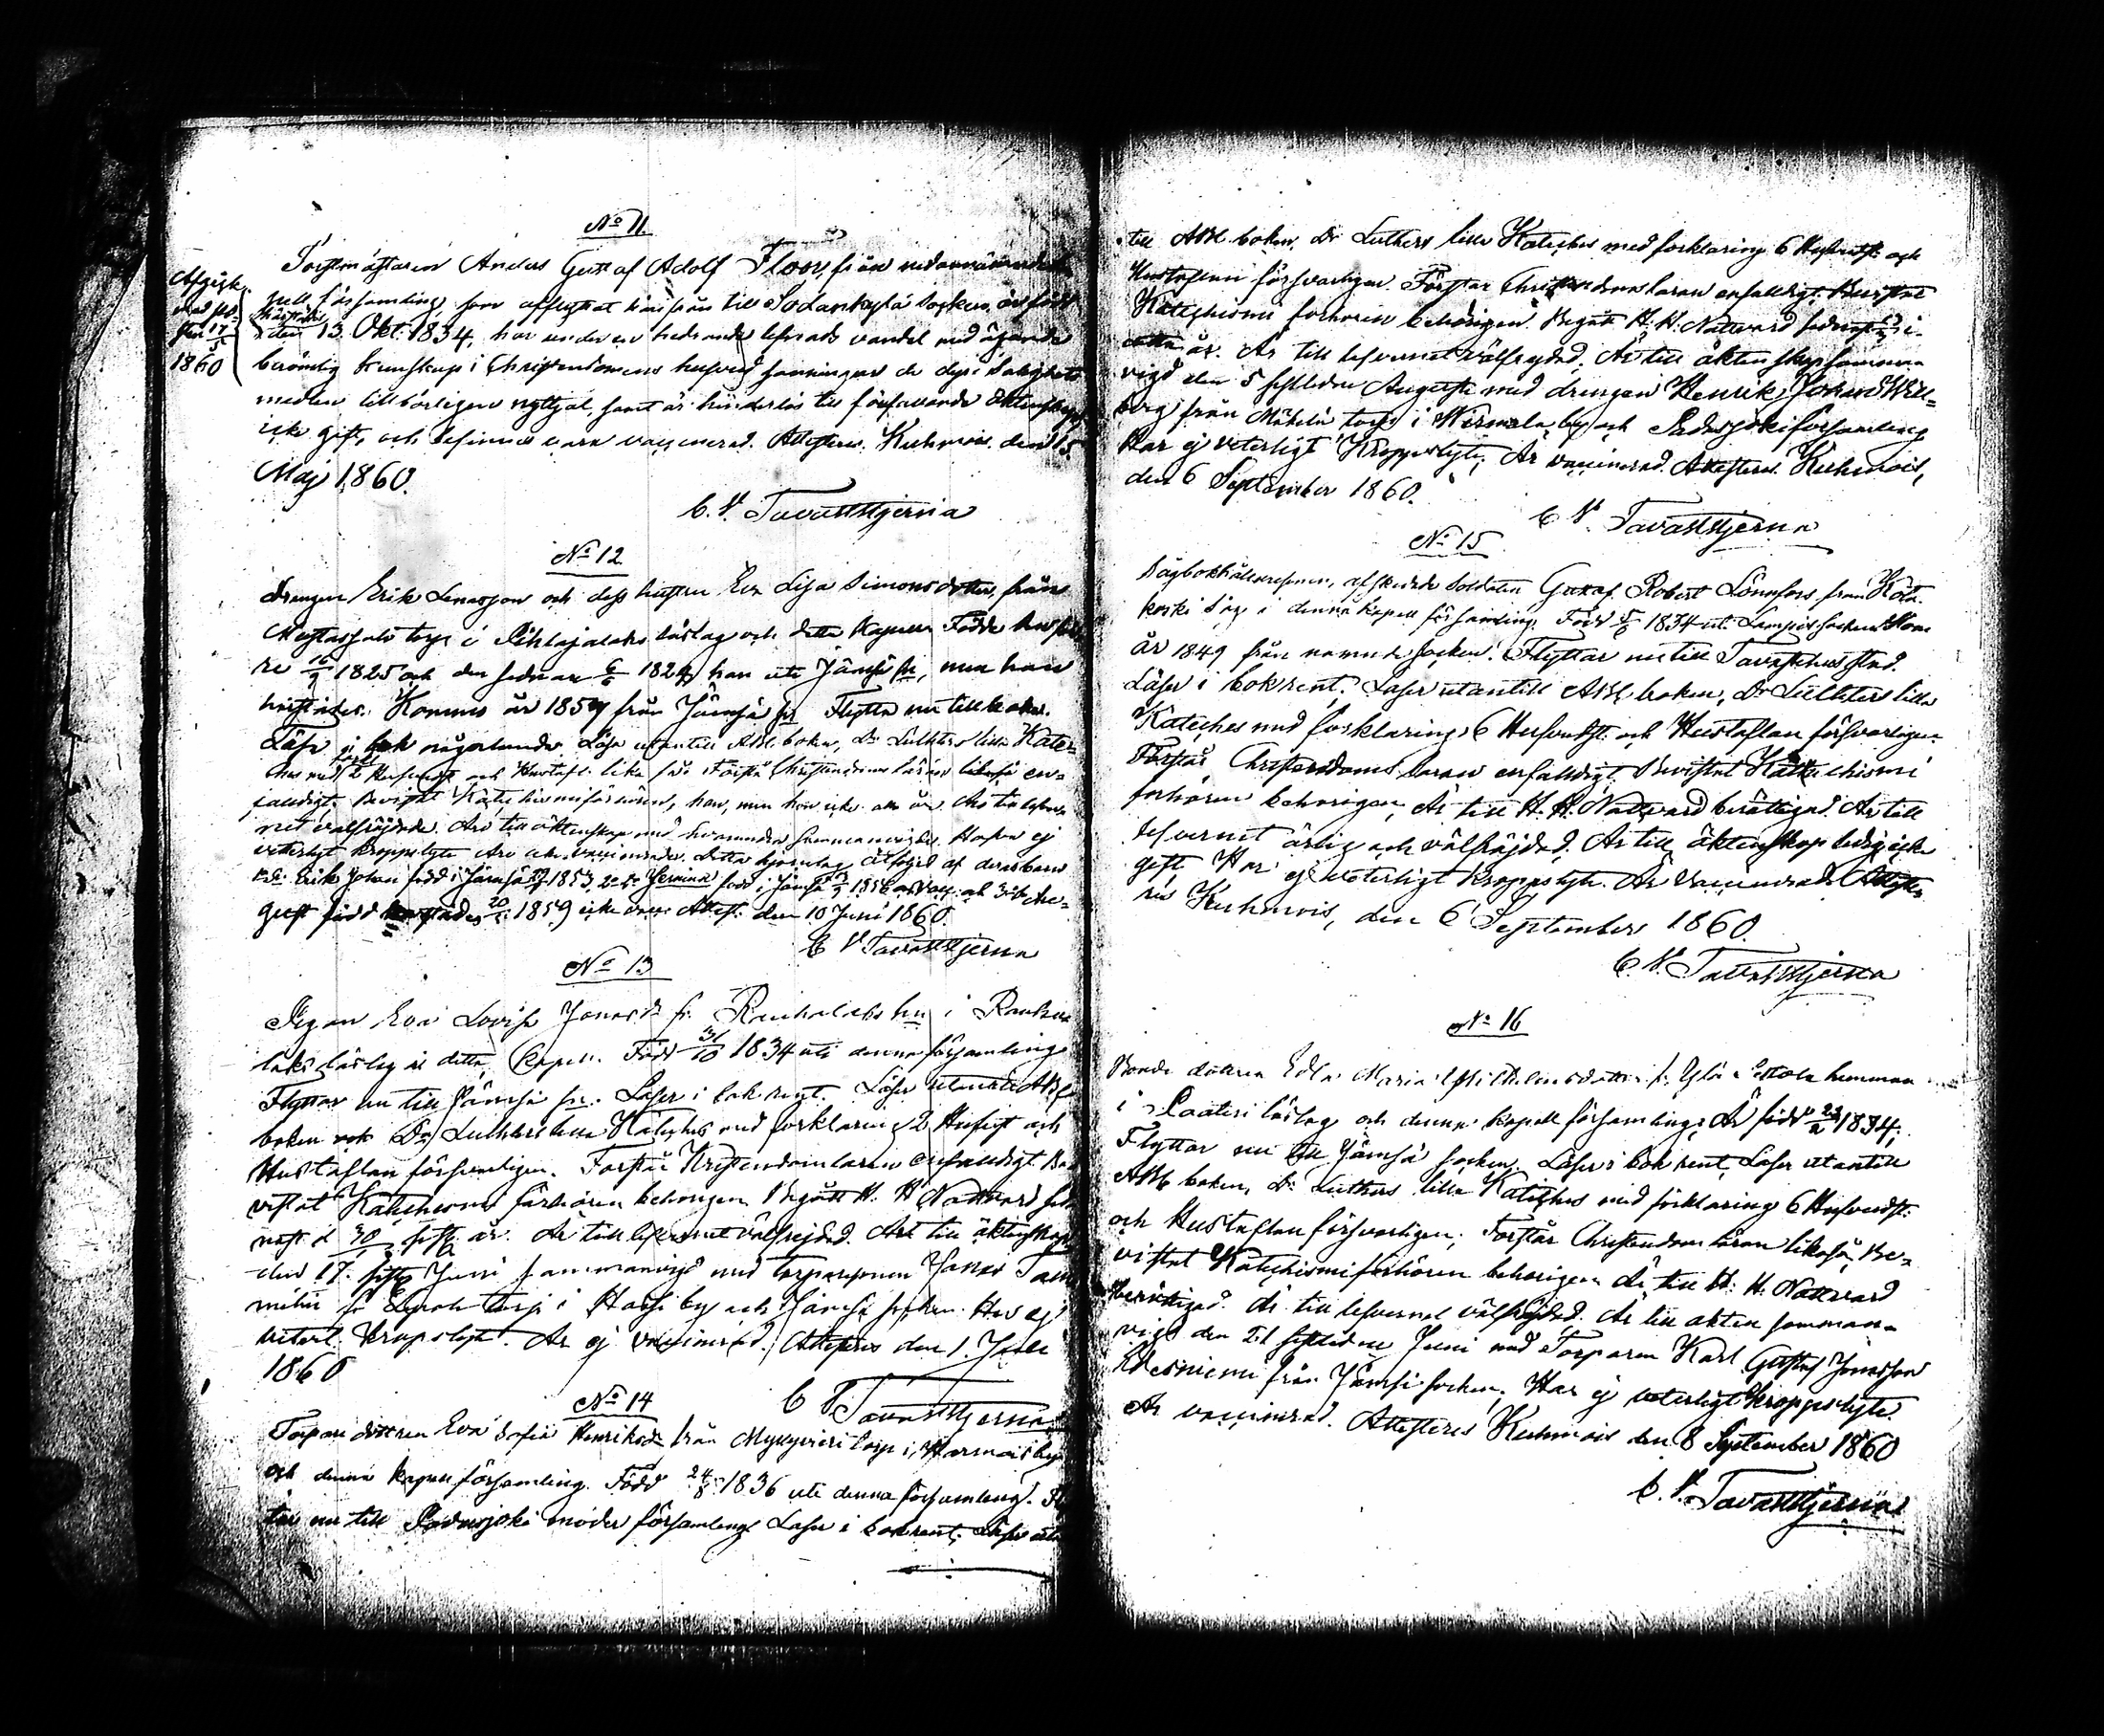 No 11.
Forstmästaren Anders Gustaf Adolf Floor, från
Afgick
med
den 17/5
1860
pell församling, som afflyttat härifrån till Sodankylä socken, är född
härstädes den 13 Okt. 1834, har under en hedrande lefnads vandel med ägande
berömlig kunskap i Christendomens hufvud sanningar de dyra Salighets
medlen tillbörligen nyttjat, samt är hinderlös till äktenskap
icke gift, och befinnes vara vaccinerad. Attesteras. Kuhmois den 15
Maj 1860.
C. V. Tavaststjerna
No 12
Drängen Erik Lenasson och dess hustru Eva Lisa Simonsdotter, från
torp i Pihlajalaks låslag och detta Kapell. Född
re 16/ 1825 och den sednare 6/6 182 han uti Jämsä sn, men hon
härstädes. Kommo år 1859 från Jämsä sn. Flytta nu tillbaka.
Läsa i bok någorlunda. Läsa utantill ABC boken, Dr Luthers lilla Kate-
ches med 2 Hufvudst. och Hustafl. lika så. Förstå Christendoms läran en-
faldigt. Bevistat Katechismiförhören, han, men hon icke
net välfräjdade. Äro till äktenskap med hvarandra sammanvigde. Hafva ej
veterligt kroppslyte. Äro vaccinerade. Detta hjonelag åtföljes af deras barn
Erik Johan född i Jämsä 1853, Hermina född i Jämsä 1856 och 3:o
Gust född härstädes 20/ 1859 icke vacc. Attest. den 10 Juni 1860.
C V Tavaststjerna
No 13
Pigan Eva Lovisa Jonasd. fr. Rauhalahti hn i
laks låslag i detta Kapell. Född 31/10 1834 uti denna församling
Flyttar nu till Jämsä sn. Läser i bok rent. Läser utantill ABC
boken och Dr Luthers lilla Kateches med förklaring 2 Hufvst och
Hustaflan försvarligen. Förstår Kristendomsläran enfaldigt. Be
vistat Katechismi förhören behörigen. Begått H. H. Nattvard sed
nast d 30/ sistl. år. Är till lefvernet välfrejdad. Är till äktenskap
den 17 sistl. Juni sammanvigd med torparesonen Jonas
torp i by och Jämsä socken. Har ej
veterl. kroppslyte. Är ej vaccinerad. Attesteras den 1 Juli
1860
C V Tavaststjerna
No 14
Torpare dottren Eva Sofia Henriksdr från torp i Harmois by
och denna kapell församling. Född 24/8 1836 uti denna församling. Fly
tar nu till Padasjoki moder församling. Läser i bok rent. Läser utan
till ABC boken, Dr Luthers lilla Kateches med förklaring 6 Hufvudst. och
Hustaflan försvarligen. Förstår Christendomsläran enfaldigt. Bevistat
Katechismi förhören behörigen. Begått H. H. Nattvard sednast i
detta år. Är till lefvernet välfrejdad. Är till äktenskap samman-
vigd den 5 sistliden Augusti med drengen Henrik Johan Will-
berg från Mäkelä torp i Wirmala by och Padasjoki församling
Har ej veterligt kroppslyte. Är vaccinerad. Attesteras. Kuhmois,
den 6 September 1860.
C V. Tavaststjerna
No 15
Sågbokhållaresonen, afskedade Soldaten Gustaf Robert Lönnfors, från
koski Såg i denna Kapell församling. Född 5/6 1834 uti Lampis socken. Kom
år 1849 från nämnde socken. Flyttar nu till Tavastehus stad.
Läser i bok rent. Läser utantill ABC boken, Dr Luthers lilla
Kateches med förklaring 6 Hufvudst. och Hustaflan försvarligen.
Förstår Christendoms läran enfalldigt. Bevistat Katechismi
förhören behörigen. Är till H. H. Nattvard berättigad. Är till
lefvernet ärlig och välfräjdad. Är till äktenskap ledig icke
gift. Har ej veterligt kroppslyte. Är vaccinerad. Atteste-
ras Kuhmois, den 6 September 1860.
C. V. Tavaststjerna
No 16
Bonde dottren Edla Maria Wilhelmsdotter fr. Ylä hemman
i Paatisi låslag och denna kapell församling. Är född 23/ 1834,
Flyttar nu till Jämsä socken. Läser i bok rent, Läser utantill
ABC boken, Dr Luthers lilla Kateches med förklaring 6 Hufvudst.
och Hustaflan försvarligen. Förstår Christendomsläran likaså. Be-
vistat Katechismiförhören behörigen. Är till H. H. Nattvard
berättigad. Är till lefvernet välfräjdad. Är till äkten samman-
vigd den 21 sistliden Juni med Torparen Karl Gustaf Jonasson
från Jämsä socken. Har ej veterligt kroppslyte.
Är vaccinerad. Attesteras Kuhmois den 8 September 1860
C. V. Tavaststjerna